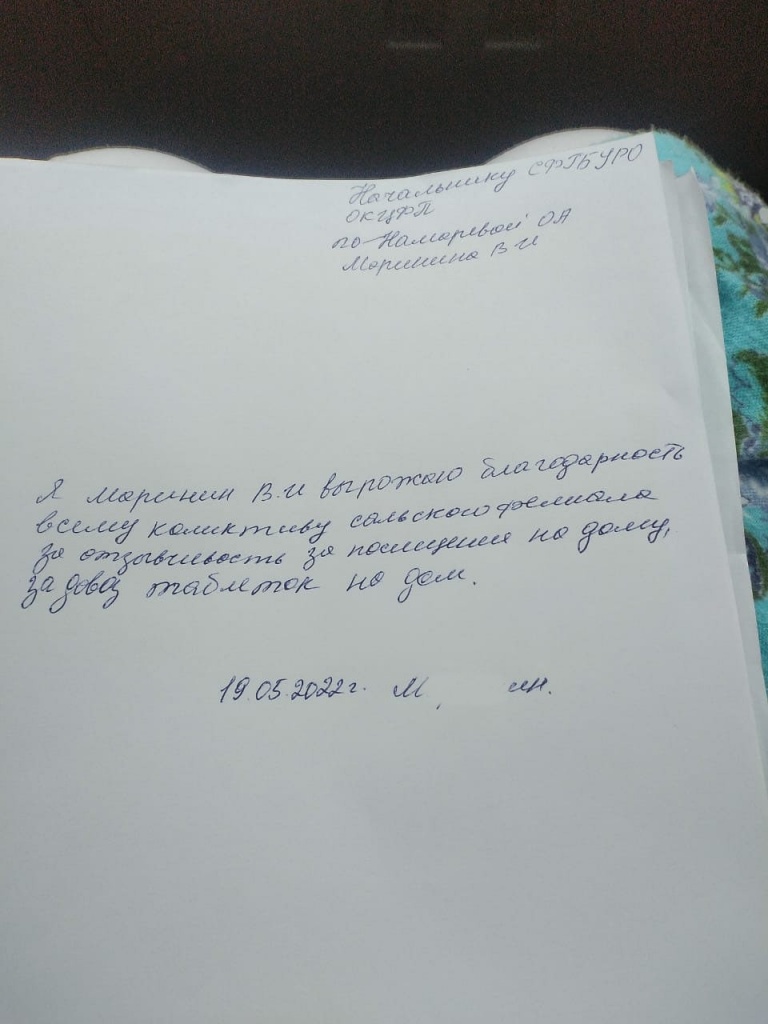 Начальнику СФГБУРО
ОКЦФП
го-Намаревой ОА
Маринина В И
Я Маринин В.И вырожаю благодарность
всему коликтиву сальского фелиала
за отзывчивость за посищения на дому,
за довоз таблеток на дом.
19.05.2022г. М ин.